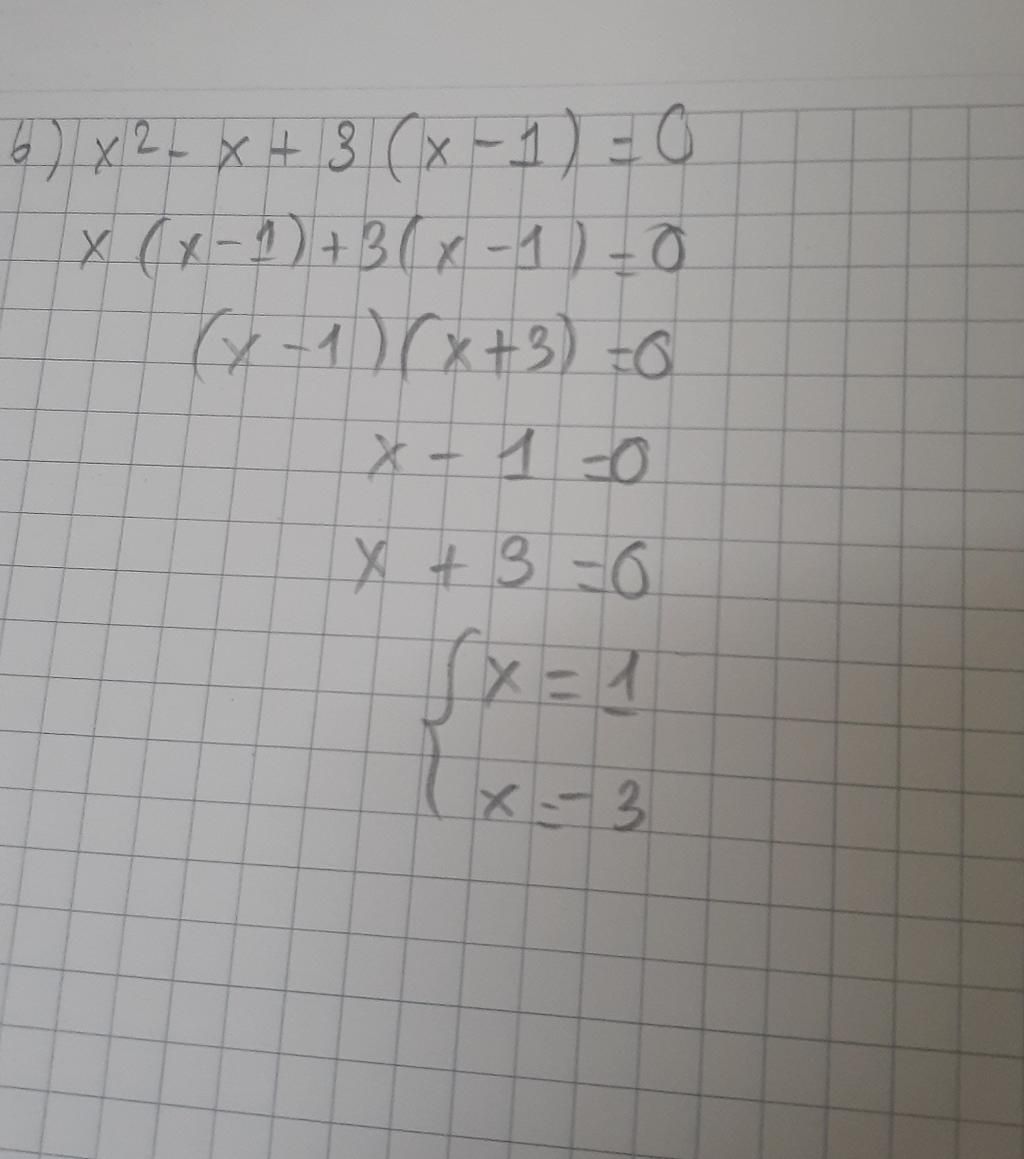 6) x² - x + 3 (x - 1) = 0
x (x - 1) + 3 (x - 1) = 0
(x - 1) (x + 3) = 0
x - 1 = 0
x + 3 = 0
{ x = 1
x = - 3